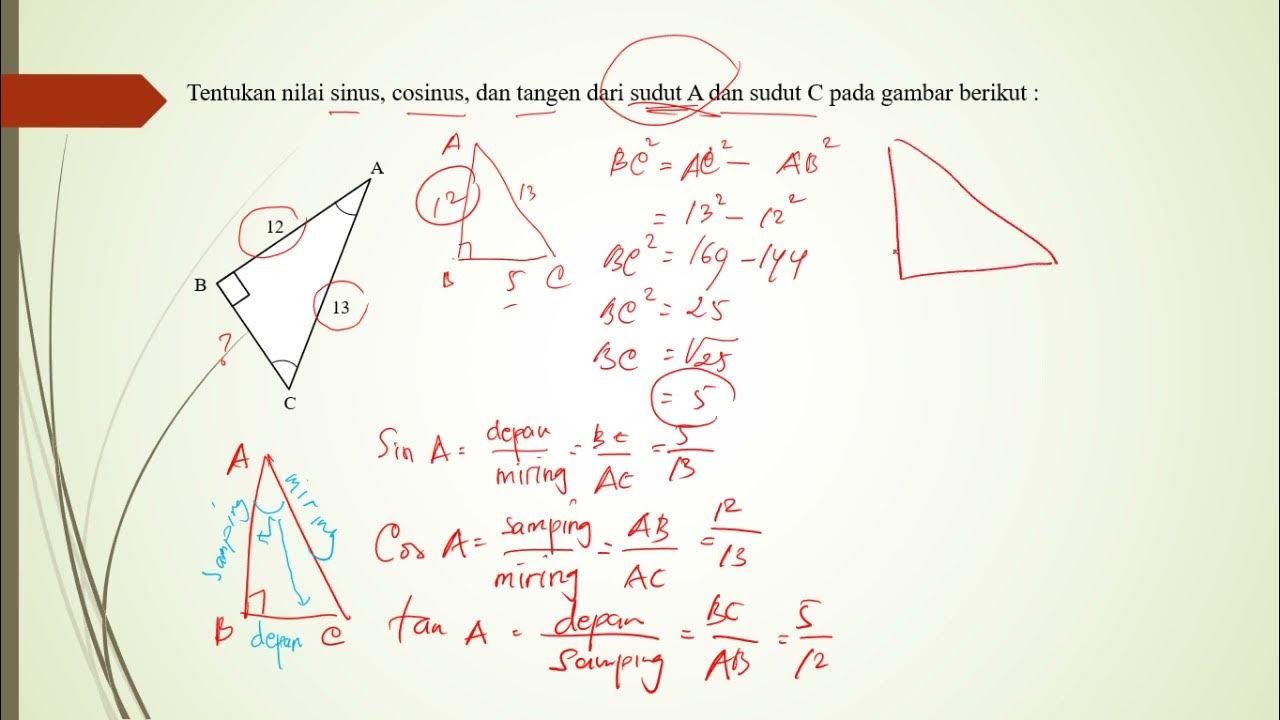 Tentukan nilai sinus, cosinus, dan tangen dari sudut A dan sudut C pada gambar berikut :
A
12
B
13
?
C
A
12
13
B
5
C
BC² = AC² - AB²
= 13² - 12²
BC² = 169 - 144
BC² = 25
BC = √25
= 5
A
samping
miring
B
depan
C
Sin A = depan/miring = BC/AC = 5/13
Cos A = samping/miring = AB/AC = 12/13
tan A = depan/samping = BC/AB = 5/12